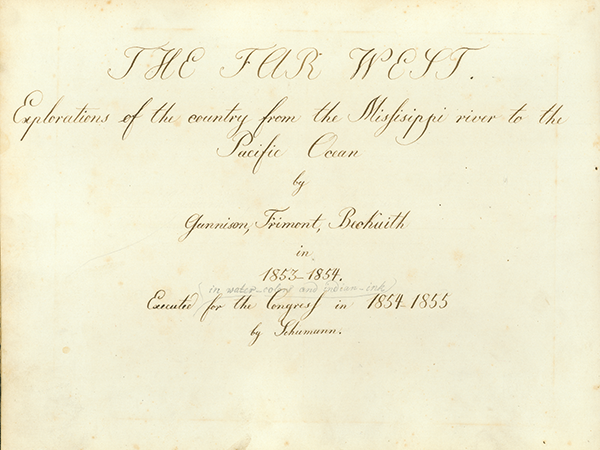 THE FAR WEST.
Explorations of the country from the Missisippi river to the
Pacific Ocean
by
Gunnison, Frimont, Bechuith
in
1853-1854.
(in water-colors and indian-ink)
Executed for the Congress in 1854-1855
by Schumann.